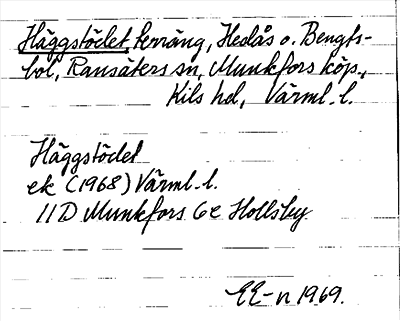 Häggstödet, terräng, Hedås o. Bengts-
bol, Ransäters sn, Munkfors köp.,
Kils hd, Värml. l.
Häggstödet
ek (1968) Värml. l.
11 D Munkfors 6e Hollsby
EE-n 1969.